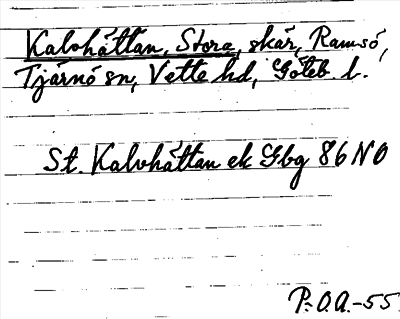 Kalvháttan, Stora, skár, Ramsó,
Tjárnó sn, Vette hd, Góteb. l.
St. Kalvháttan ek Gbg 86 NO
P.-O.A.-55.